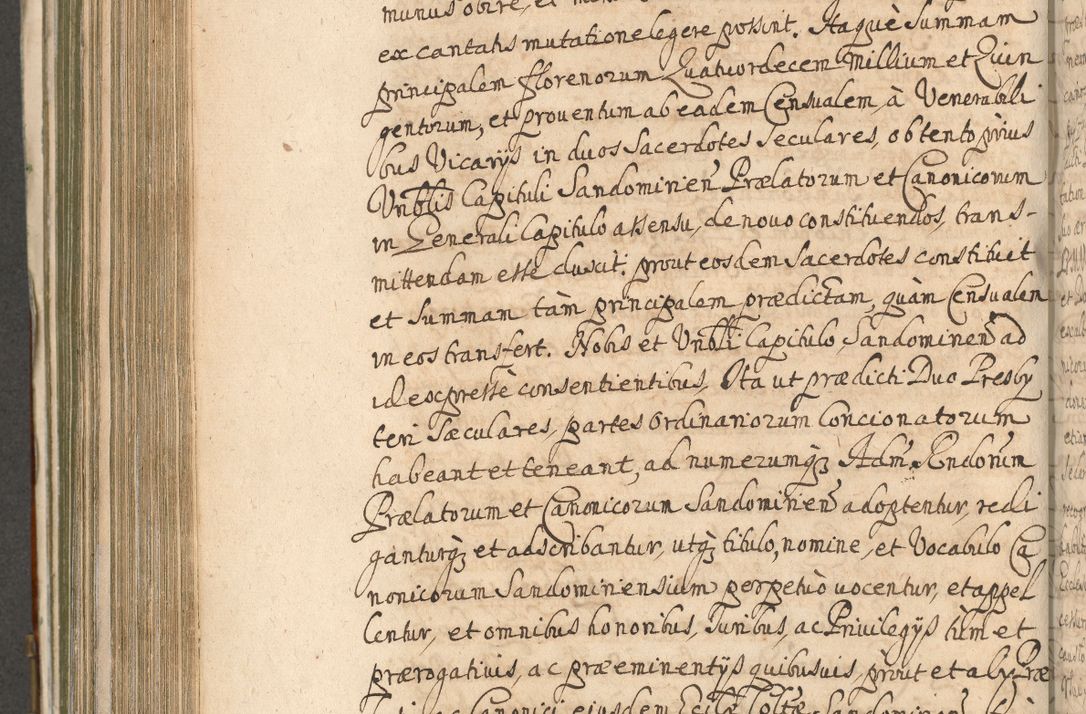 munus obire, et
ex cantatis mutatione legere possint. Itaquè Summam
principalem florenorum Quatuordecem Millium et Quin
gentorum, et proventum ab eadem Censualem, à Venerabili
bus Vicarijs in duos Sacerdotes Seculares, obtento priùs
Vnblis Capituli Sandomirien Prælatorum et Canonicorum
in Generali Capitulo assensu, de novo constituendos, trans-
mittendam esse duxit: prout eosdem Sacerdotes constituit
et Summam tàm principalem prædictam, quàm Censualem
in eos transfert. Nobis et Vnbli Capitulo Sandomirien ad
id expressè consentientibus. Ita ut prædicti Duo Presby
teri Sæculares, partes Ordinariorum Concionatorum
habeant et teneant, ad numerumq3 Adm. Rndorum
Prælatorum et Canonicorum Sandomirien adoptentur, redi
ganturq3 et adscribantur, utq3 titulo, nomine, et Vocabulo Ca
nonicorum Sandomiriensium perpetuò vocentur, et appel
lentur, et omnibus honoribus, Juribus, ac Privilegijs tùm et
prærogativis, ac præeminentijs quibusuis, pròut et alij Præ
ac Canonici eiusdem Eccl Coltæ Sandomirien